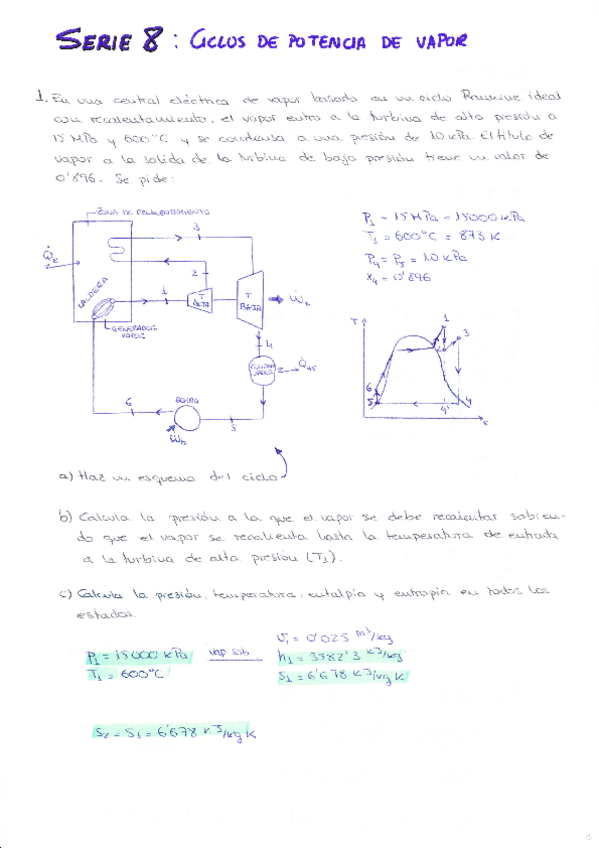 SERIE 8 : CICLOS DE POTENCIA DE VAPOR
1. En una central eléctrica de vapor basada en un ciclo Rankine ideal
con recalentamiento, el vapor entra a la turbina de alta presión a
15 MPa y 600°C y se condensa a una presión de 10 kPa. El título de
vapor a la salida de la turbina de baja presión tiene un valor de
0'896. Se pide:
ZONA DE RECALENTAMIENTO
3
Q̇e
2
CALDERA
1
T ALTA
T BAJA
Ẇt
GENERADOR VAPOR
4
Q̇45
6
BOMBA
5
Ẇb
P1 = 15 MPa = 15000 kPa
T1 = 600°C = 873 K
P4 = P5 = 10 kPa
x4 = 0'896
T
1
3
6
5
4'
4
s
a) Haz un esquema del ciclo
b) Calcula la presión a la que el vapor se debe recalentar sabien-
do que el vapor se recalienta hasta la temperatura de entrada
a la turbina de alta presión (T1).
c) Calcula la presión, temperatura, entalpía y entropía en todos los
estados.
P1 = 15000 kPa
T1 = 600°C
vap sob
v1 = 0'025 m³/kg
h1 = 3582'3 kJ/kg
s1 = 6'678 kJ/kg K
s2 = s1 = 6'678 kJ/kg K